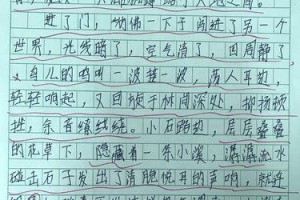 进了门，仿佛一下子闯进了另一个
世界，光线暗了，空气清了，四周静了
鸟儿的鸣叫一波接一波，荡人耳劫
轻轻响起，又回旋于林间深处，挫挫顿
挫，余音绦绕绕。小石路边，层层叠叠
的花草下，隐藏有一条小溪，潺潺流水
碰击石子发出了清脆悦耳的声响，就连